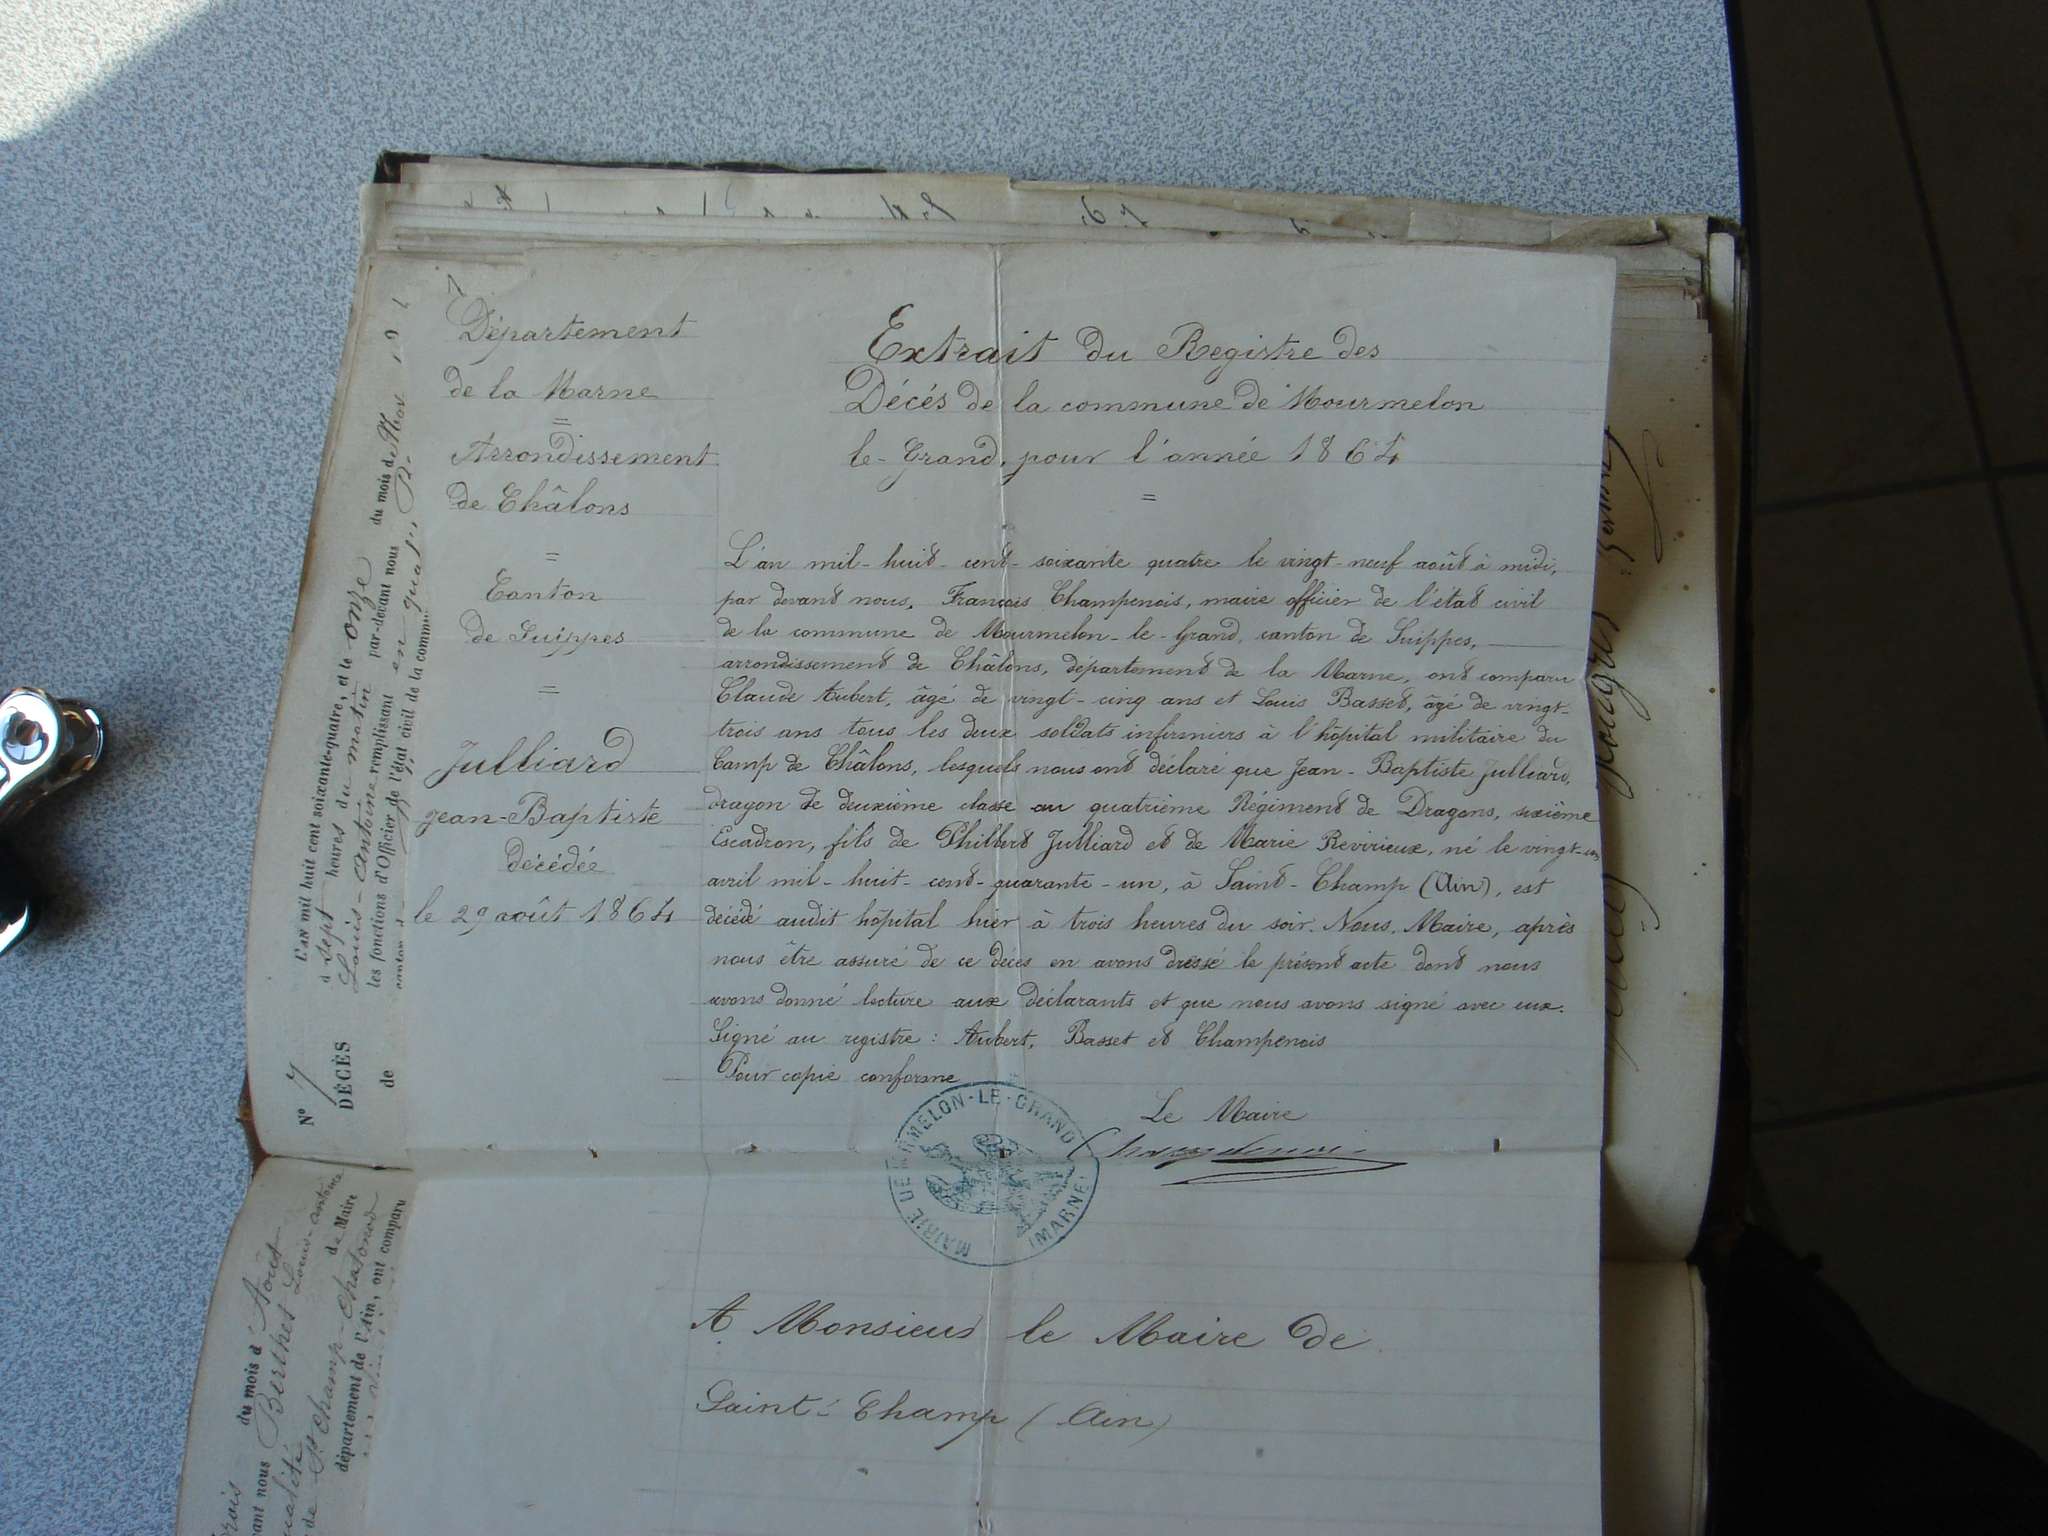 Département
de la Marne
=
Arrondissement
de Châlons
=
Canton
de Suippes
=
Julliard
Jean-Baptiste
décédée
le 29 août 1864
Extrait du Registre des
Décés de la commune de Mourmelon
le-Grand, pour l'année 1864
=
L'an mil-huit-cent-soixante quatre le vingt-neuf août à midi,
par devant nous, François Champenois, maire officier de l'état civil
de la commune de Mourmelon-le-Grand, canton de Suippes,
arrondissement de Châlons, département de la Marne, ont comparu
Claude Aubert, âgé de vingt-cinq ans et Louis Basset, âgé de vingt-
trois ans tous les deux soldats infirmiers à l'hôpital militaire du
Camp de Châlons, lesquels nous ont déclaré que Jean-Baptiste Julliard,
dragon de deuxième classe au quatrième Régiment de Dragons, sixième
Escadron, fils de Philbert Julliard et de Marie Revirieux, né le vingt-un
avril mil-huit-cent-quarante-un, à Saint-Champ (Ain), est
décédé audit hôpital hier à trois heures du soir. Nous, Maire, après
nous être assuré de ce décés en avons dressé le présent acte dont nous
avons donné lecture aux déclarants et que nous avons signé avec eux.
Signé au registre : Aubert, Basset et Champenois
Pour copie conforme
Le Maire
Champenois
MAIRIE DE MOURMELON-LE-GRAND
(MARNE)
A Monsieur le Maire de
Saint-Champ (Ain)
N° 7
DÉCÈS
de
L'AN mil huit cent soixante-quatre, et le onze du mois de
à sept heures du matin par-devant nous
Louis-Antoine remplissant en qualité
les fonctions d'Officier de l'état civil de la commune
du mois d'Août
vant nous Berthet Louis-antoine
qualité de Maire
de St champ-Chatonod
département de l'Ain, ont comparu